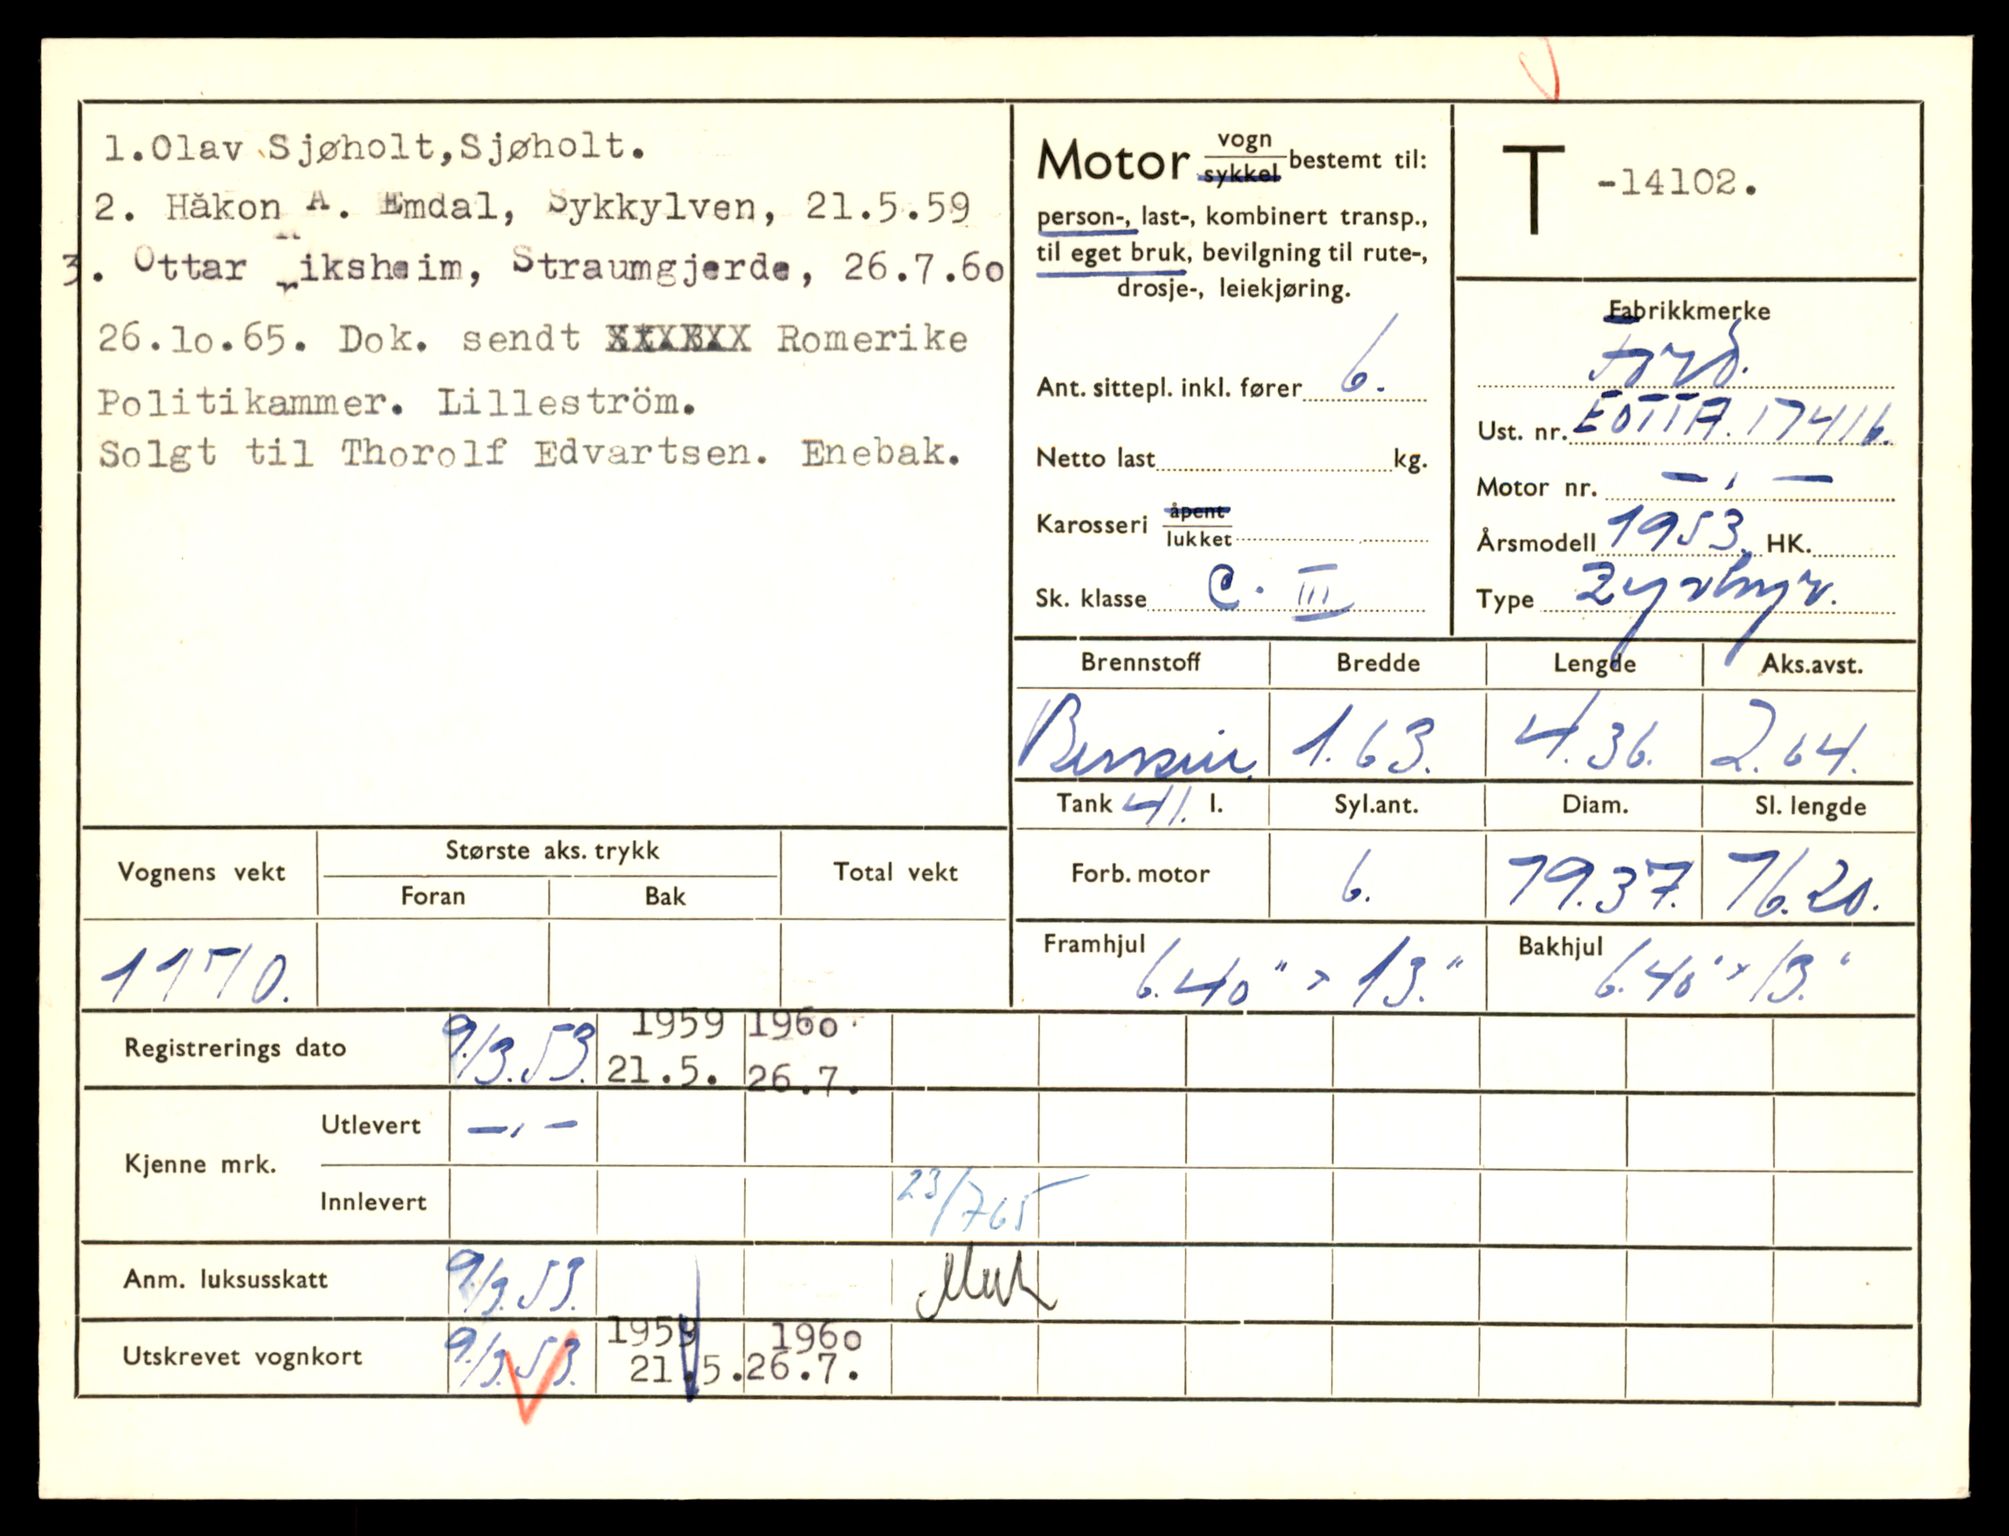 1.Olav Sjøholt,Sjøholt.
2. Håkon A. Emdal, Sykkylven, 21.5.59
3. Ottar iksheim, Straumgjerde, 26.7.6o
26.1o.65. Dok. sendt XXXXXX Romerike
Politikammer. Lilleström.
Solgt til Thorolf Edvartsen. Enebak.
Motor vogn/sykkel bestemt til:
person-, last-, kombinert transp.,
til eget bruk, bevilgning til rute-,
drosje-, leiekjøring.
Ant. sittepl. inkl. fører 6.
Netto last kg.
Karosseri åpent/lukket
Sk. klasse C. III
T -14102.
Fabrikkmerke
Ford.
Ust. nr. EOTTA.17416.
Motor nr. — , —
Årsmodell 1953. HK.
Type Zephyr.
Brennstoff Bredde Lengde Aks.avst.
Bensin 1.63. 4.36. 2.64.
Tank 41. l. Syl.ant. Diam. Sl. lengde
Forb. motor 6. 79.37. 76.20.
Framhjul 6.40" x 13." Bakhjul 6.40" x 13."
Vognens vekt Største aks. trykk Total vekt
Foran Bak
1170.
Registrerings dato 9/3.53. 1959 21.5. 196o 26.7.
Kjenne mrk. Utlevert — , —
Innlevert 23/7 65
Anm. luksusskatt 9/3.53.
Utskrevet vognkort 9/3.53. 1959 21.5. 196o 26.7.